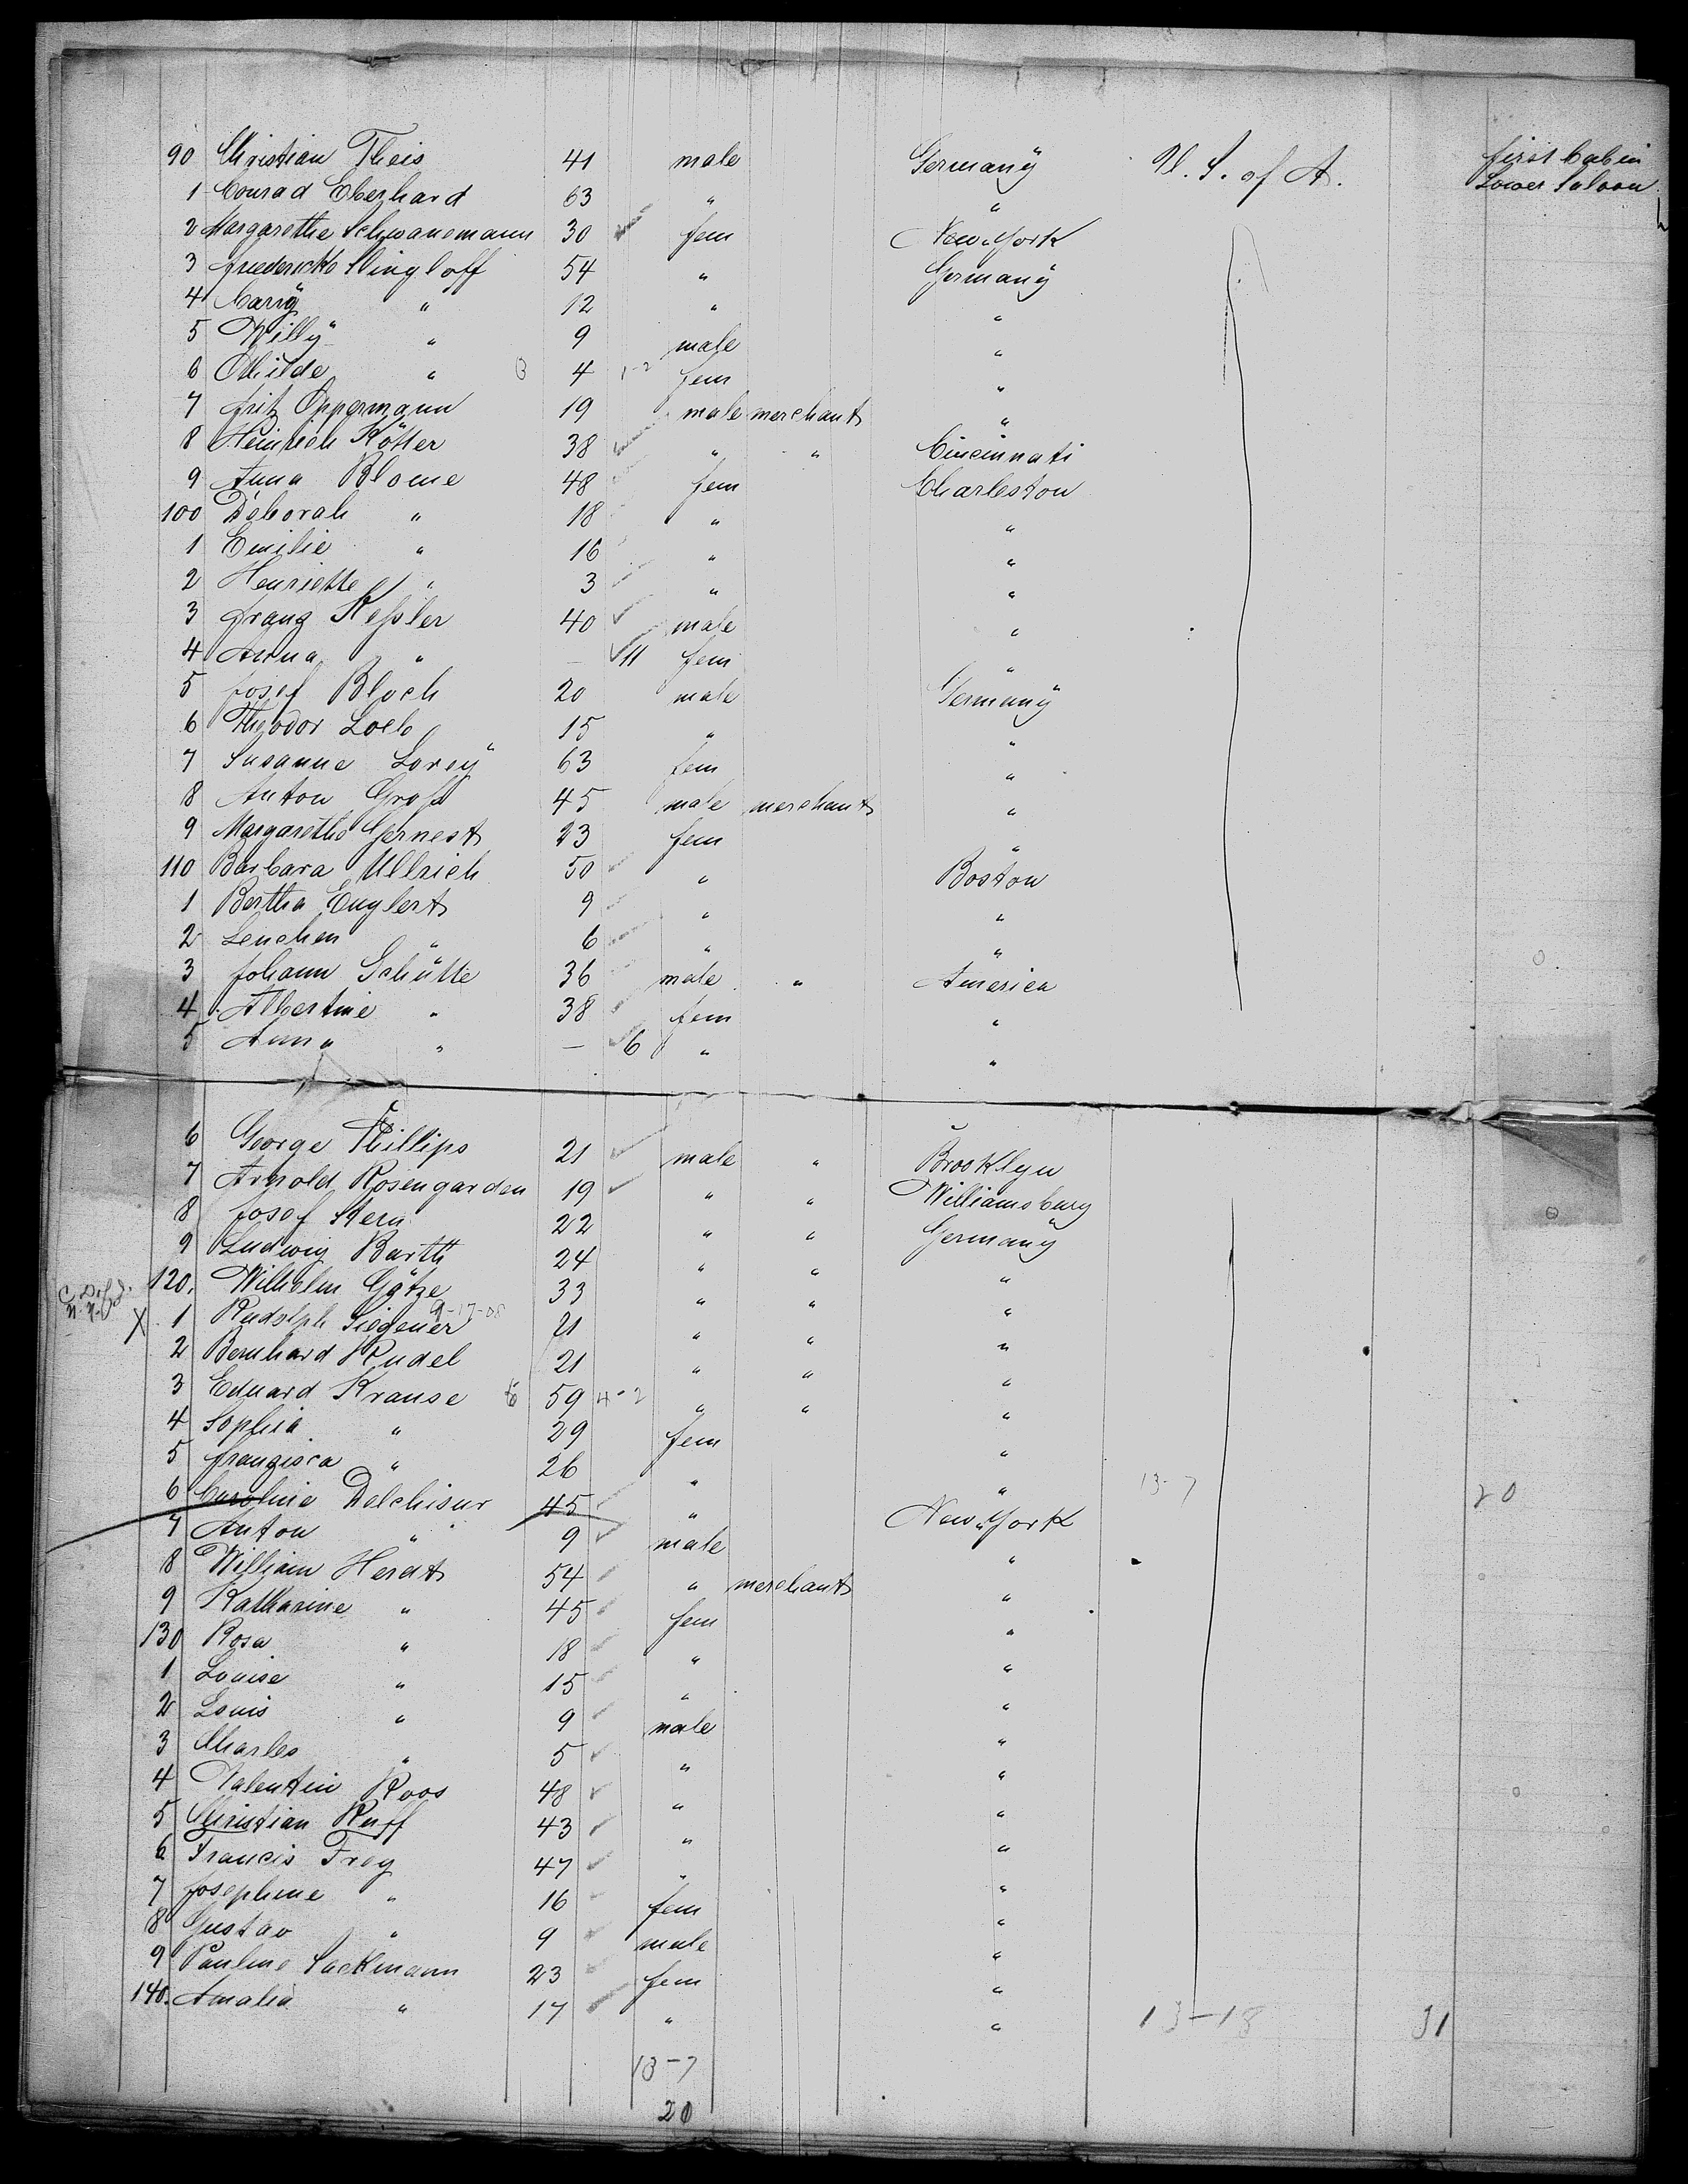 90 Christian Theis 41 male Germany U. S. of A. first Cabin
1 Conrad Eberhard 63 " " Lower Saloon.
2 Margarethe Schwanemann 30 fem New-York
3 Friedericke Slingloff 54 " Germany
4 Carry " 12 " "
5 Willy " 9 male "
6 Otilde " 4 1-2 fem "
7 Fritz Oppermann 19 male merchant "
8 Heinrich Kötter 38 " " Cincinnati
9 Anna Blome 48 fem Charleston
100 Deborah " 18 " "
1 Emilie " 16 " "
2 Henriette " 3 " "
3 Franz Keßler 40 male "
4 Anna " — 11 fem "
5 Josef Bloch 20 male Germany
6 Theodor Loeb 15 " "
7 Susanne Lorey 63 fem "
8 Anton Groß 45 male merchant "
9 Margarethe Gernest 23 fem "
110 Barbara Ullrich 50 " Boston
1 Bertha Englert 9 " "
2 Lenchen " 6 " "
3 Johann Schütte 36 male " America
4 Albertine " 38 fem "
5 Anna " — 6 " "
6 George Phillips 21 male " Brooklyn
7 Arnold Rosengarden 19 " " Williamsburg
8 Josef Stern 22 " " Germany
9 Ludwig Barth 24 " " "
120. Wilhelm Götze 33 " " "
X 1 Rudolph Siegener 21 " " "
2 Bernhard Rudel 21 " " "
3 Eduard Krause 59 4-2 " " "
4 Sophia " 29 fem "
5 Franzisca " 26 " " 13-7 20
6 Caroline Delchisur 45 " New-York
7 Anton " 9 male "
8 William Herdt 54 " merchant "
9 Katharine " 45 fem "
130 Rosa " 18 " "
1 Louise " 15 " "
2 Louis " 9 male "
3 Charles " 5 " "
4 Valentin Roos 48 " "
5 Christian Ruff 43 " "
6 Francis Frey 47 " "
7 Josephine " 16 fem "
8 Gustav " 9 male "
9 Pauline Sackmann 23 fem "
140. Amalia " 17 " " 13-18 31
13-7
20